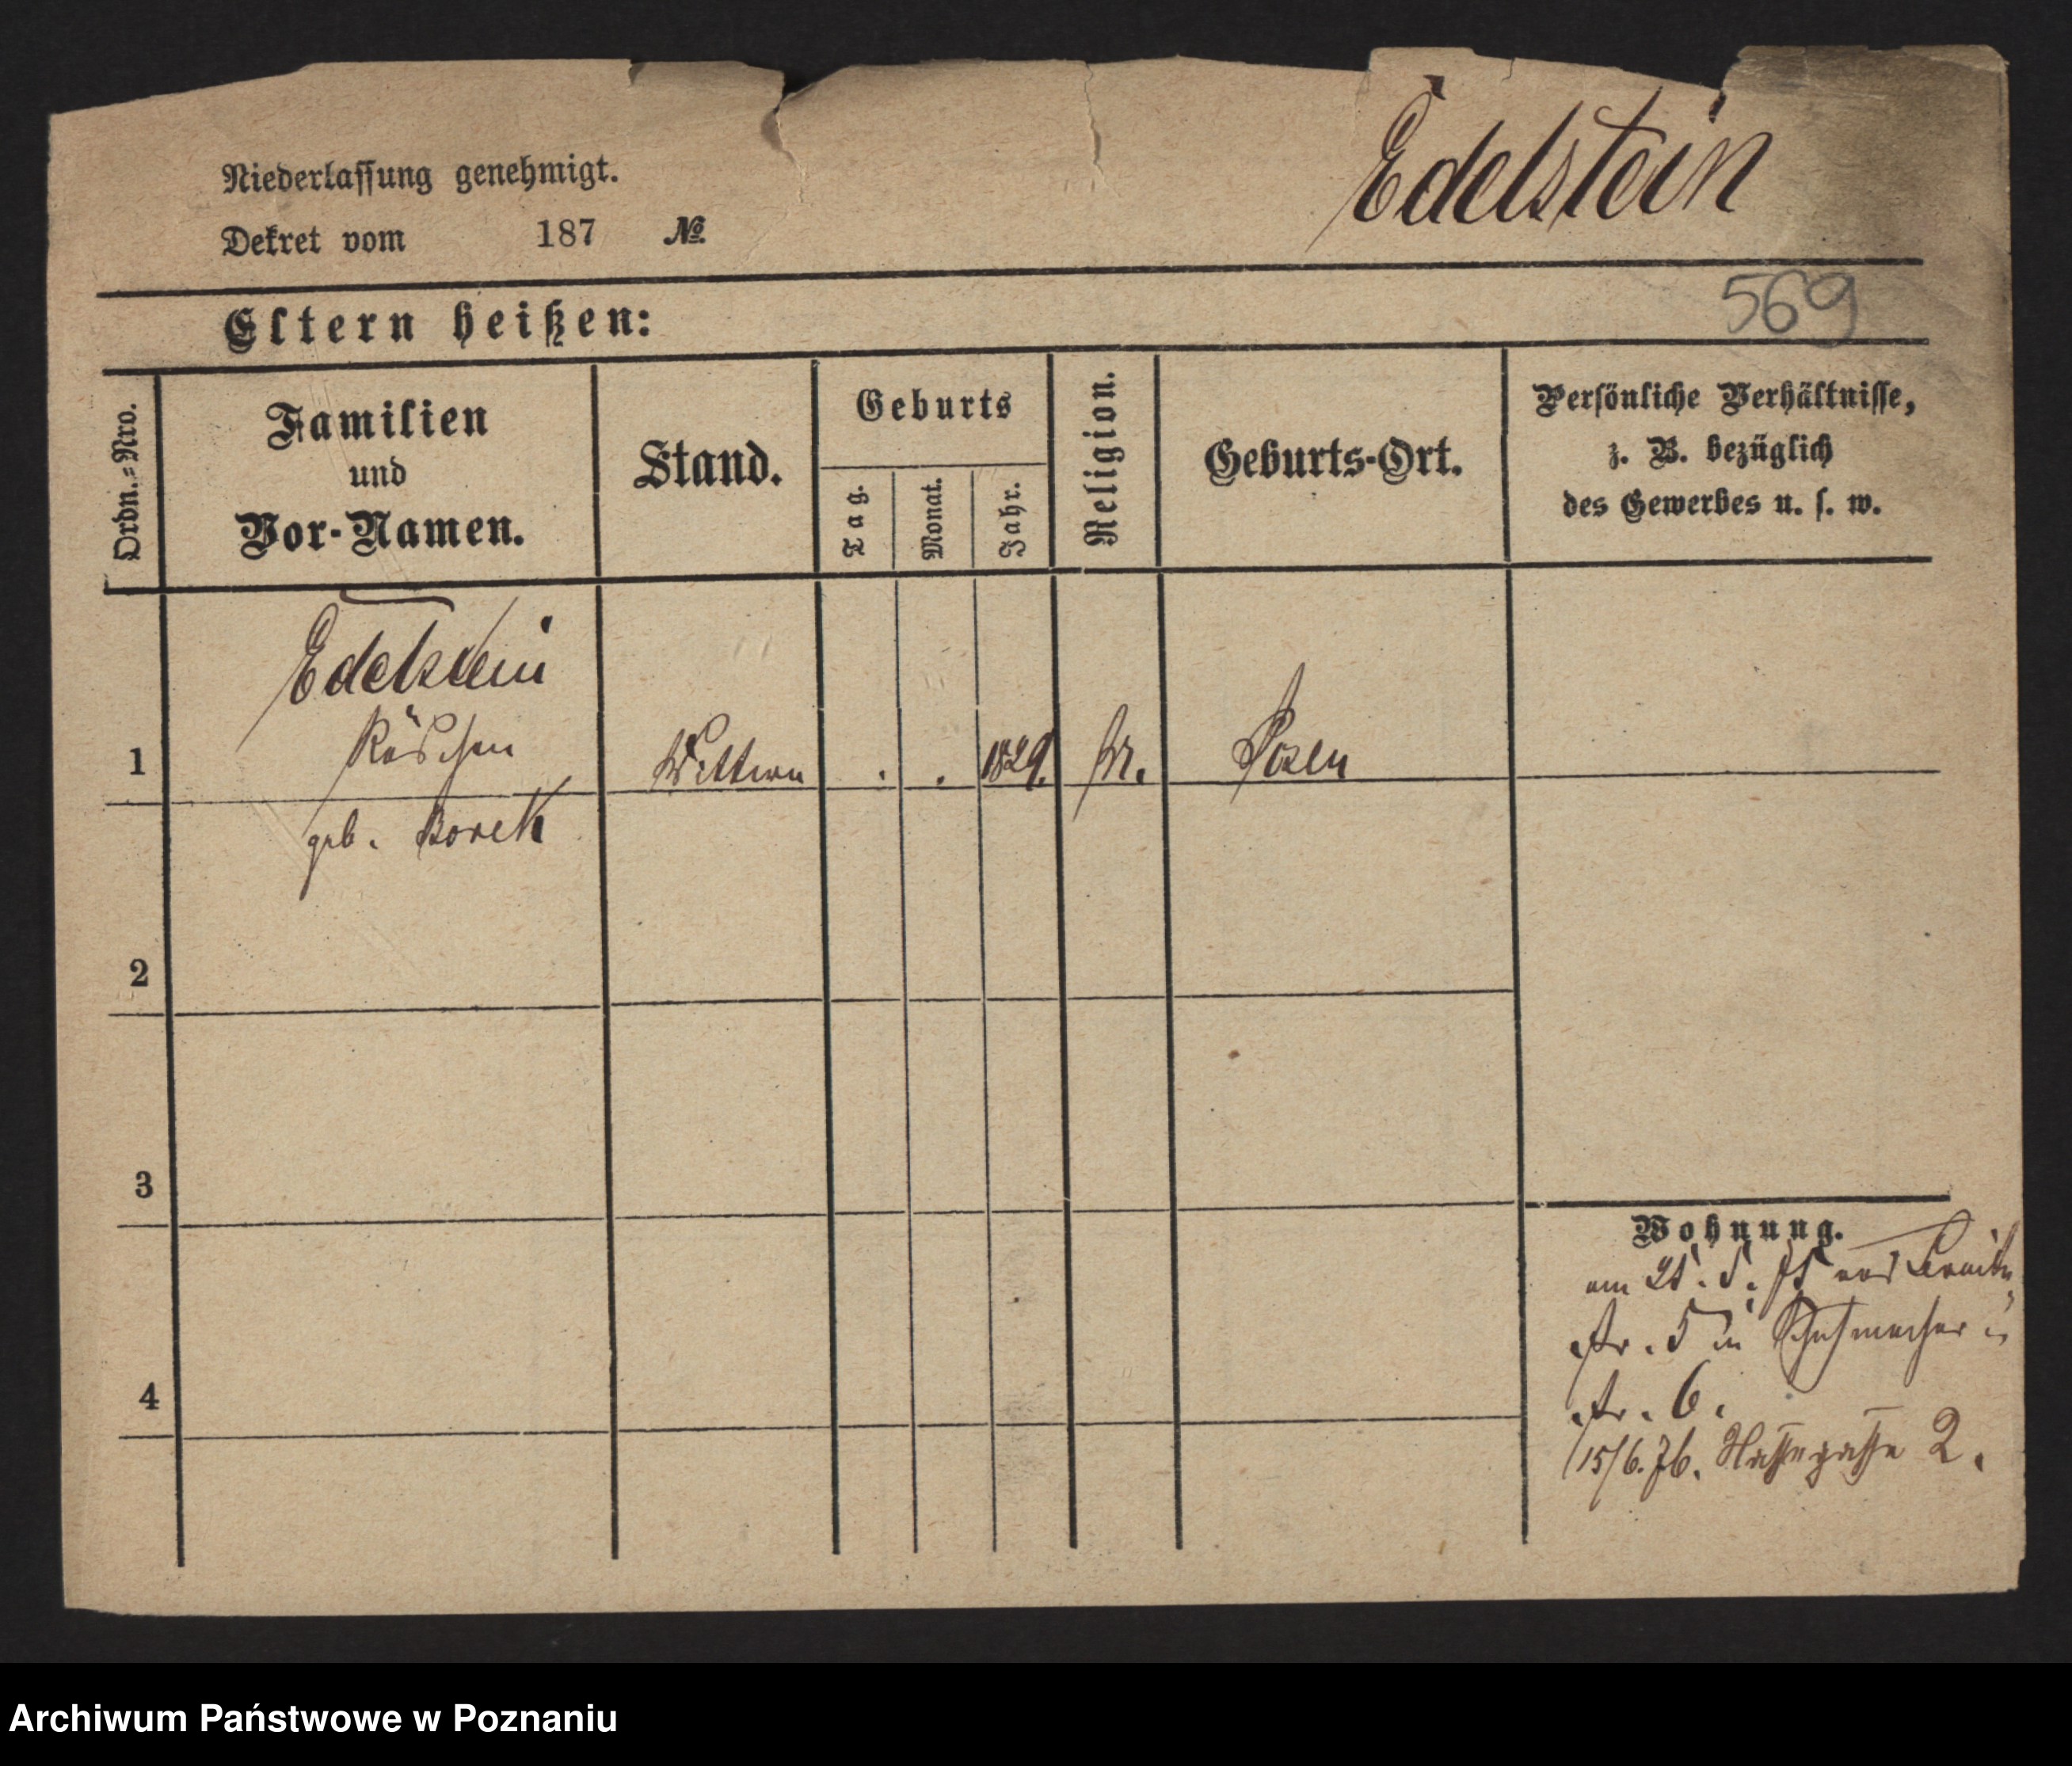 Edelstein
Niederlassung genehmigt.
Dekret vom 187 №
569
Eltern heißen:
Ordn.=Nro.
Familien
und
Vor-Namen.
Stand.
Geburts
Tag.
Monat.
Jahr.
Religion.
Geburts-Ort.
Persönliche Verhältnisse,
z. B. bezüglich
des Gewerbes u. s. w.
Edelstein
1 Röschen Wittwe . . 1829. Posen
geb. Borek
2
3
4
Wohnung.
am 25. 5. 75 von
str. 5 in Schuhmacher
str. 6.
15/6. 76. Nassegasse 2.
Archiwum Państwowe w Poznaniu